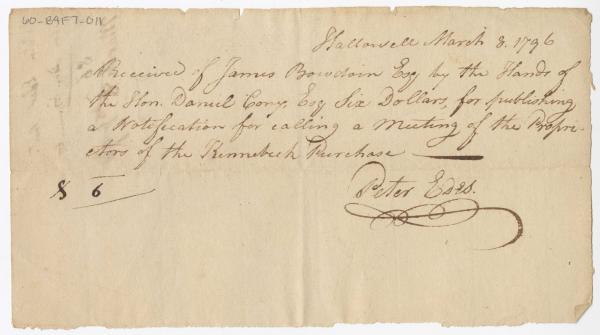 60-B4F7-011
Hallowell March 8. 1796
Received of James Bowdoin Esq by the Hands of
the Hon. Daniel Cony, Esq Six Dollars, for publishing
a Notification for calling a Meeting of the Propri-
etors of the Kennebeck Purchase
$ 6
Peter Edes.